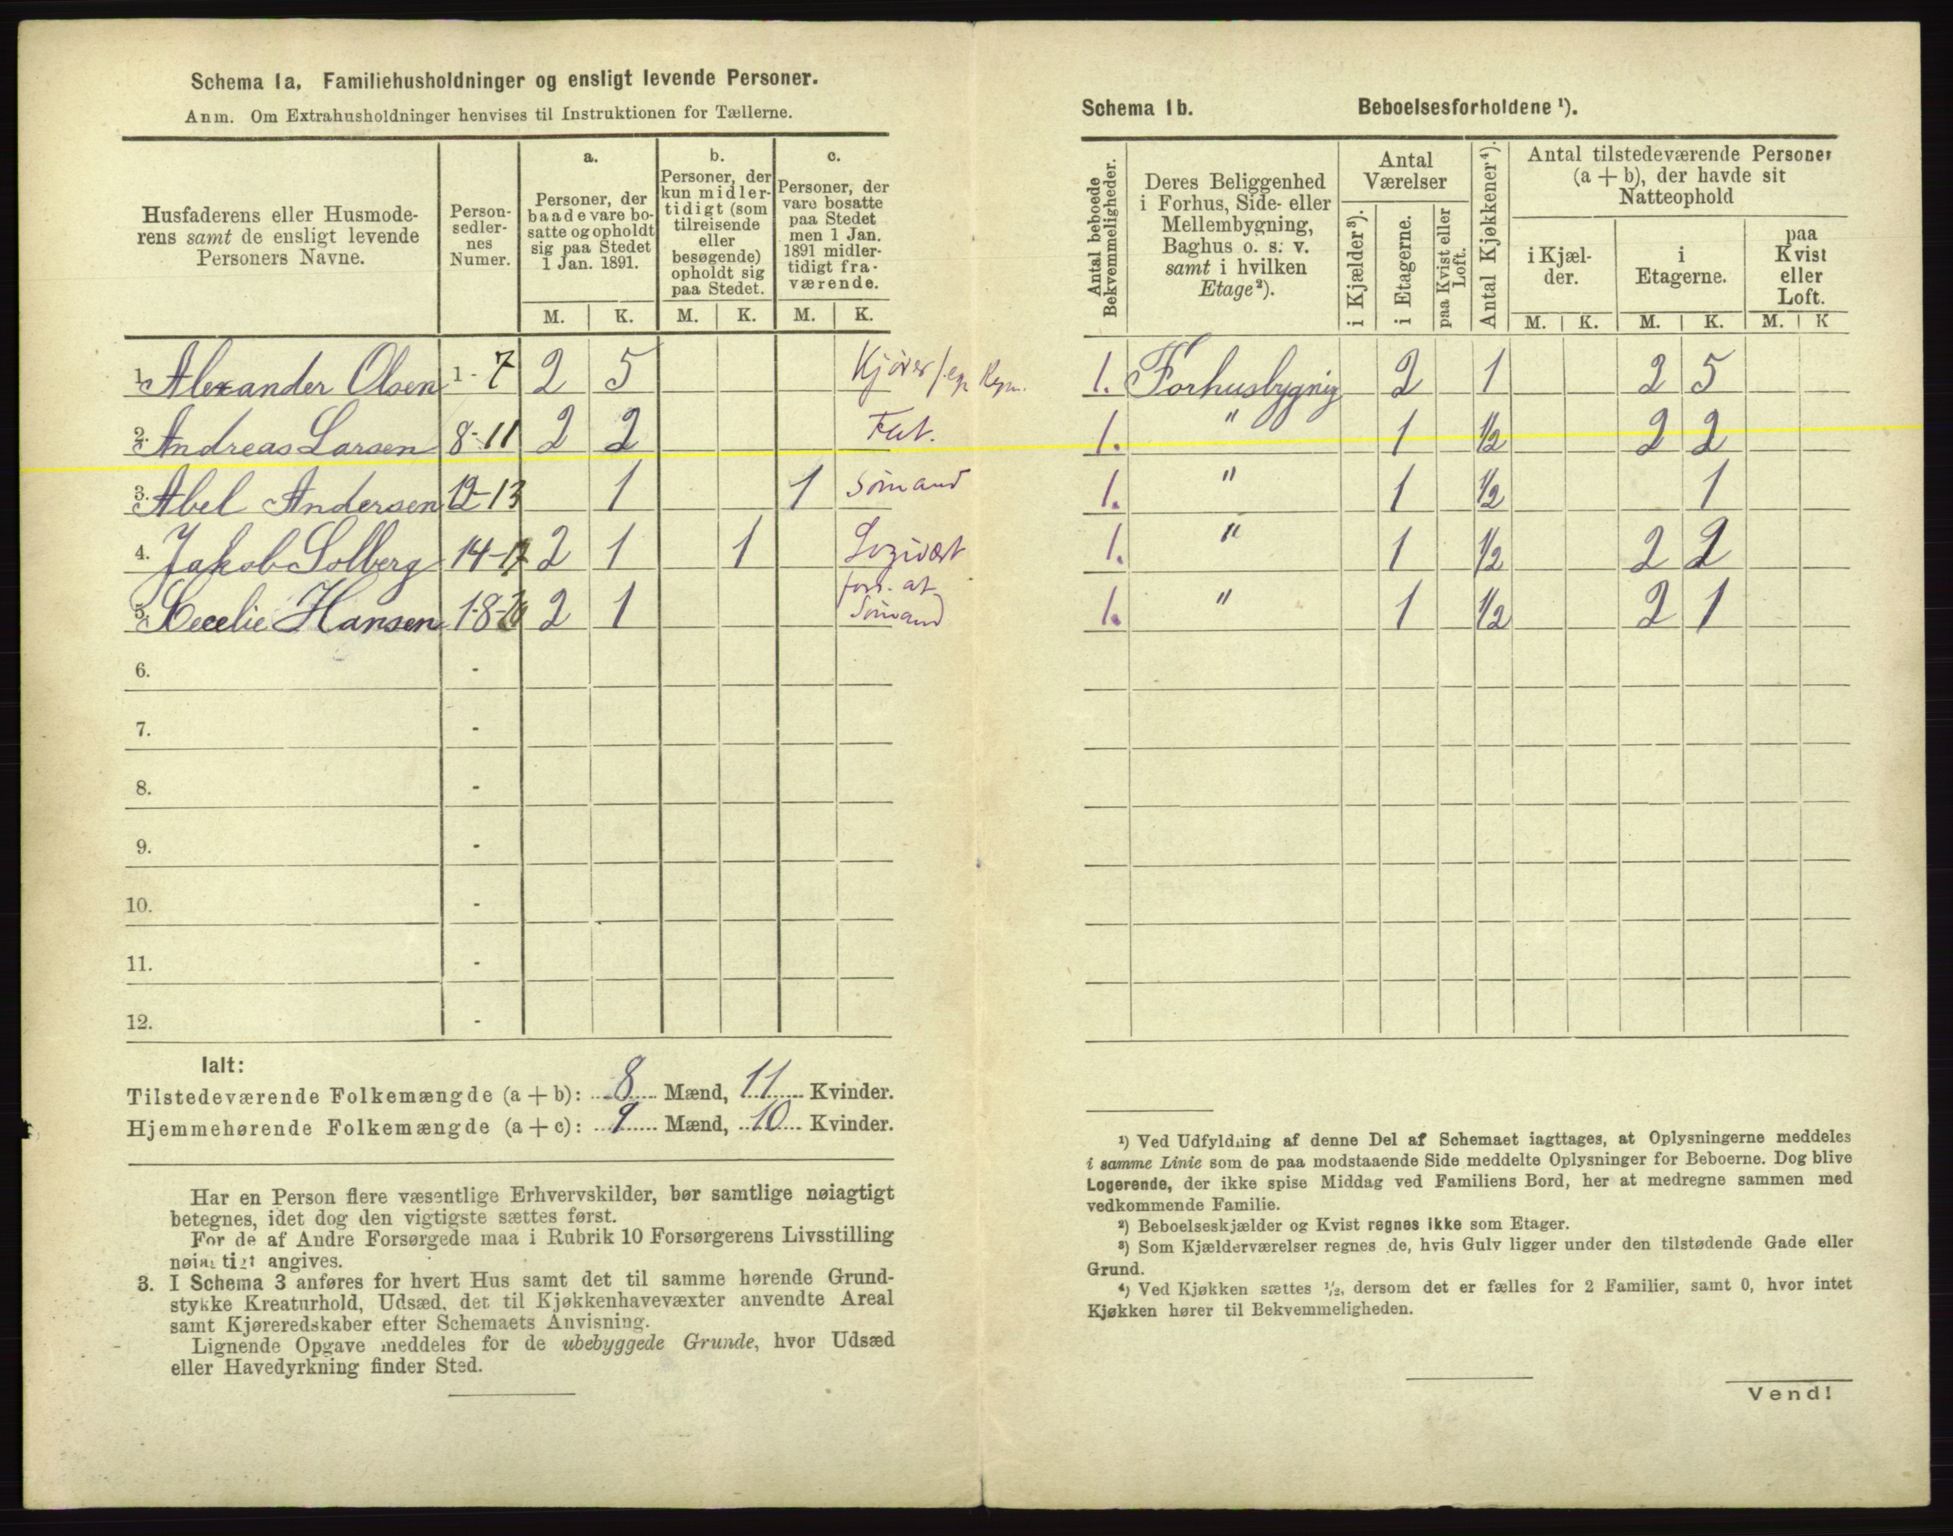 Schema 1a. Familiehusholdninger og ensligt levende Personer.
Anm. Om Extrahusholdninger henvises til Instruktionen for Tællerne.
Husfaderens eller Husmoderens samt de ensligt levende Personers Navne.
Personsedlernes Numer.
a.
Personer, der baade vare bosatte og opholdt sig paa Stedet 1 Jan. 1891.
b.
Personer, der kun midlertidigt (som tilreisende eller besøgende) opholdt sig paa Stedet.
c.
Personer, der vare bosatte paa Stedet men 1 Jan. 1891 midlertidigt fraværende.
M. K. M. K. M. K.
1. Alexander Olsen 1-7 2 5 Kjører
2. Andreas Larsen 8-11 2 2 Fat.
3. Abel Andersen 12-13 1 1 Sømand
4. Jakob Solberg 14-17 2 1 1 Logivært
5. Cecelie Hansen 18-20 2 1 fors. af Sømand
6. -
7. -
8. -
9. -
10. -
11. -
12. -
Ialt:
Tilstedeværende Folkemængde (a + b): 8 Mænd, 11 Kvinder.
Hjemmehørende Folkemængde (a + c): 9 Mænd, 10 Kvinder.
Har en Person flere væsentlige Erhvervskilder, bør samtlige nøiagtigt
betegnes, idet dog den vigtigste sættes først.
For de af Andre Forsørgede maa i Rubrik 10 Forsørgerens Livsstilling
nøiagtigt angives.
3. I Schema 3 anføres for hvert Hus samt det til samme hørende Grund-
stykke Kreaturhold, Udsæd, det til Kjøkkenhavevæxter anvendte Areal
samt Kjøreredskaber efter Schemaets Anvisning.
Lignende Opgave meddeles for de ubebyggede Grunde, hvor Udsæd
eller Havedyrkning finder Sted.
Schema 1b. Beboelsesforholdene ¹).
Antal beboede Bekvemmeligheder.
Deres Beliggenhed i Forhus, Side- eller Mellembygning, Baghus o. s. v. samt i hvilken Etage²).
Antal Værelser
i Kjælder³).
i Etagerne.
paa Kvist eller Loft.
Antal Kjøkkener⁴).
Antal tilstedeværende Personer (a + b), der havde sit Natteophold
i Kjælder.
i Etagerne.
paa Kvist eller Loft.
M. K. M. K. M. K
1. Forhusbygnig 2 1 2 5
1. " 1 ½ 2 2
1. " 1 ½ 1
1. " 1 ½ 2 2
1. " 1 ½ 2 1
¹) Ved Udfyldning af denne Del af Schemaet iagttages, at Oplysningerne meddeles
i samme Linie som de paa modstaaende Side meddelte Oplysninger for Beboerne. Dog blive
Logerende, der ikke spise Middag ved Familiens Bord, her at medregne sammen med
vedkommende Familie.
²) Beboelseskjælder og Kvist regnes ikke som Etager.
³) Som Kjælderværelser regnes de, hvis Gulv ligger under den tilstødende Gade eller
Grund.
⁴) Ved Kjøkken sættes ½, dersom det er fælles for 2 Familier, samt 0, hvor intet
Kjøkken hører til Bekvemmeligheden.
Vend!